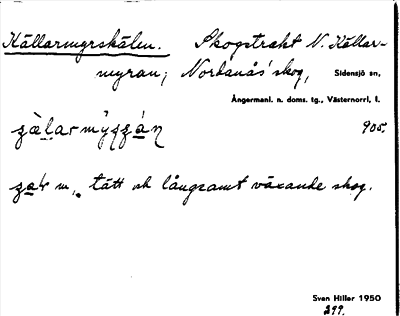 Källarmyrskälen. Skogstrakt N. Källar-
myran; Norbanås' skog, Sidensjö sn,
Ångermanl. n. doms. tg., Västernorrl. l.
905.
m., tätt och långsamt växande skog.
Sven Hiller 1950
299.